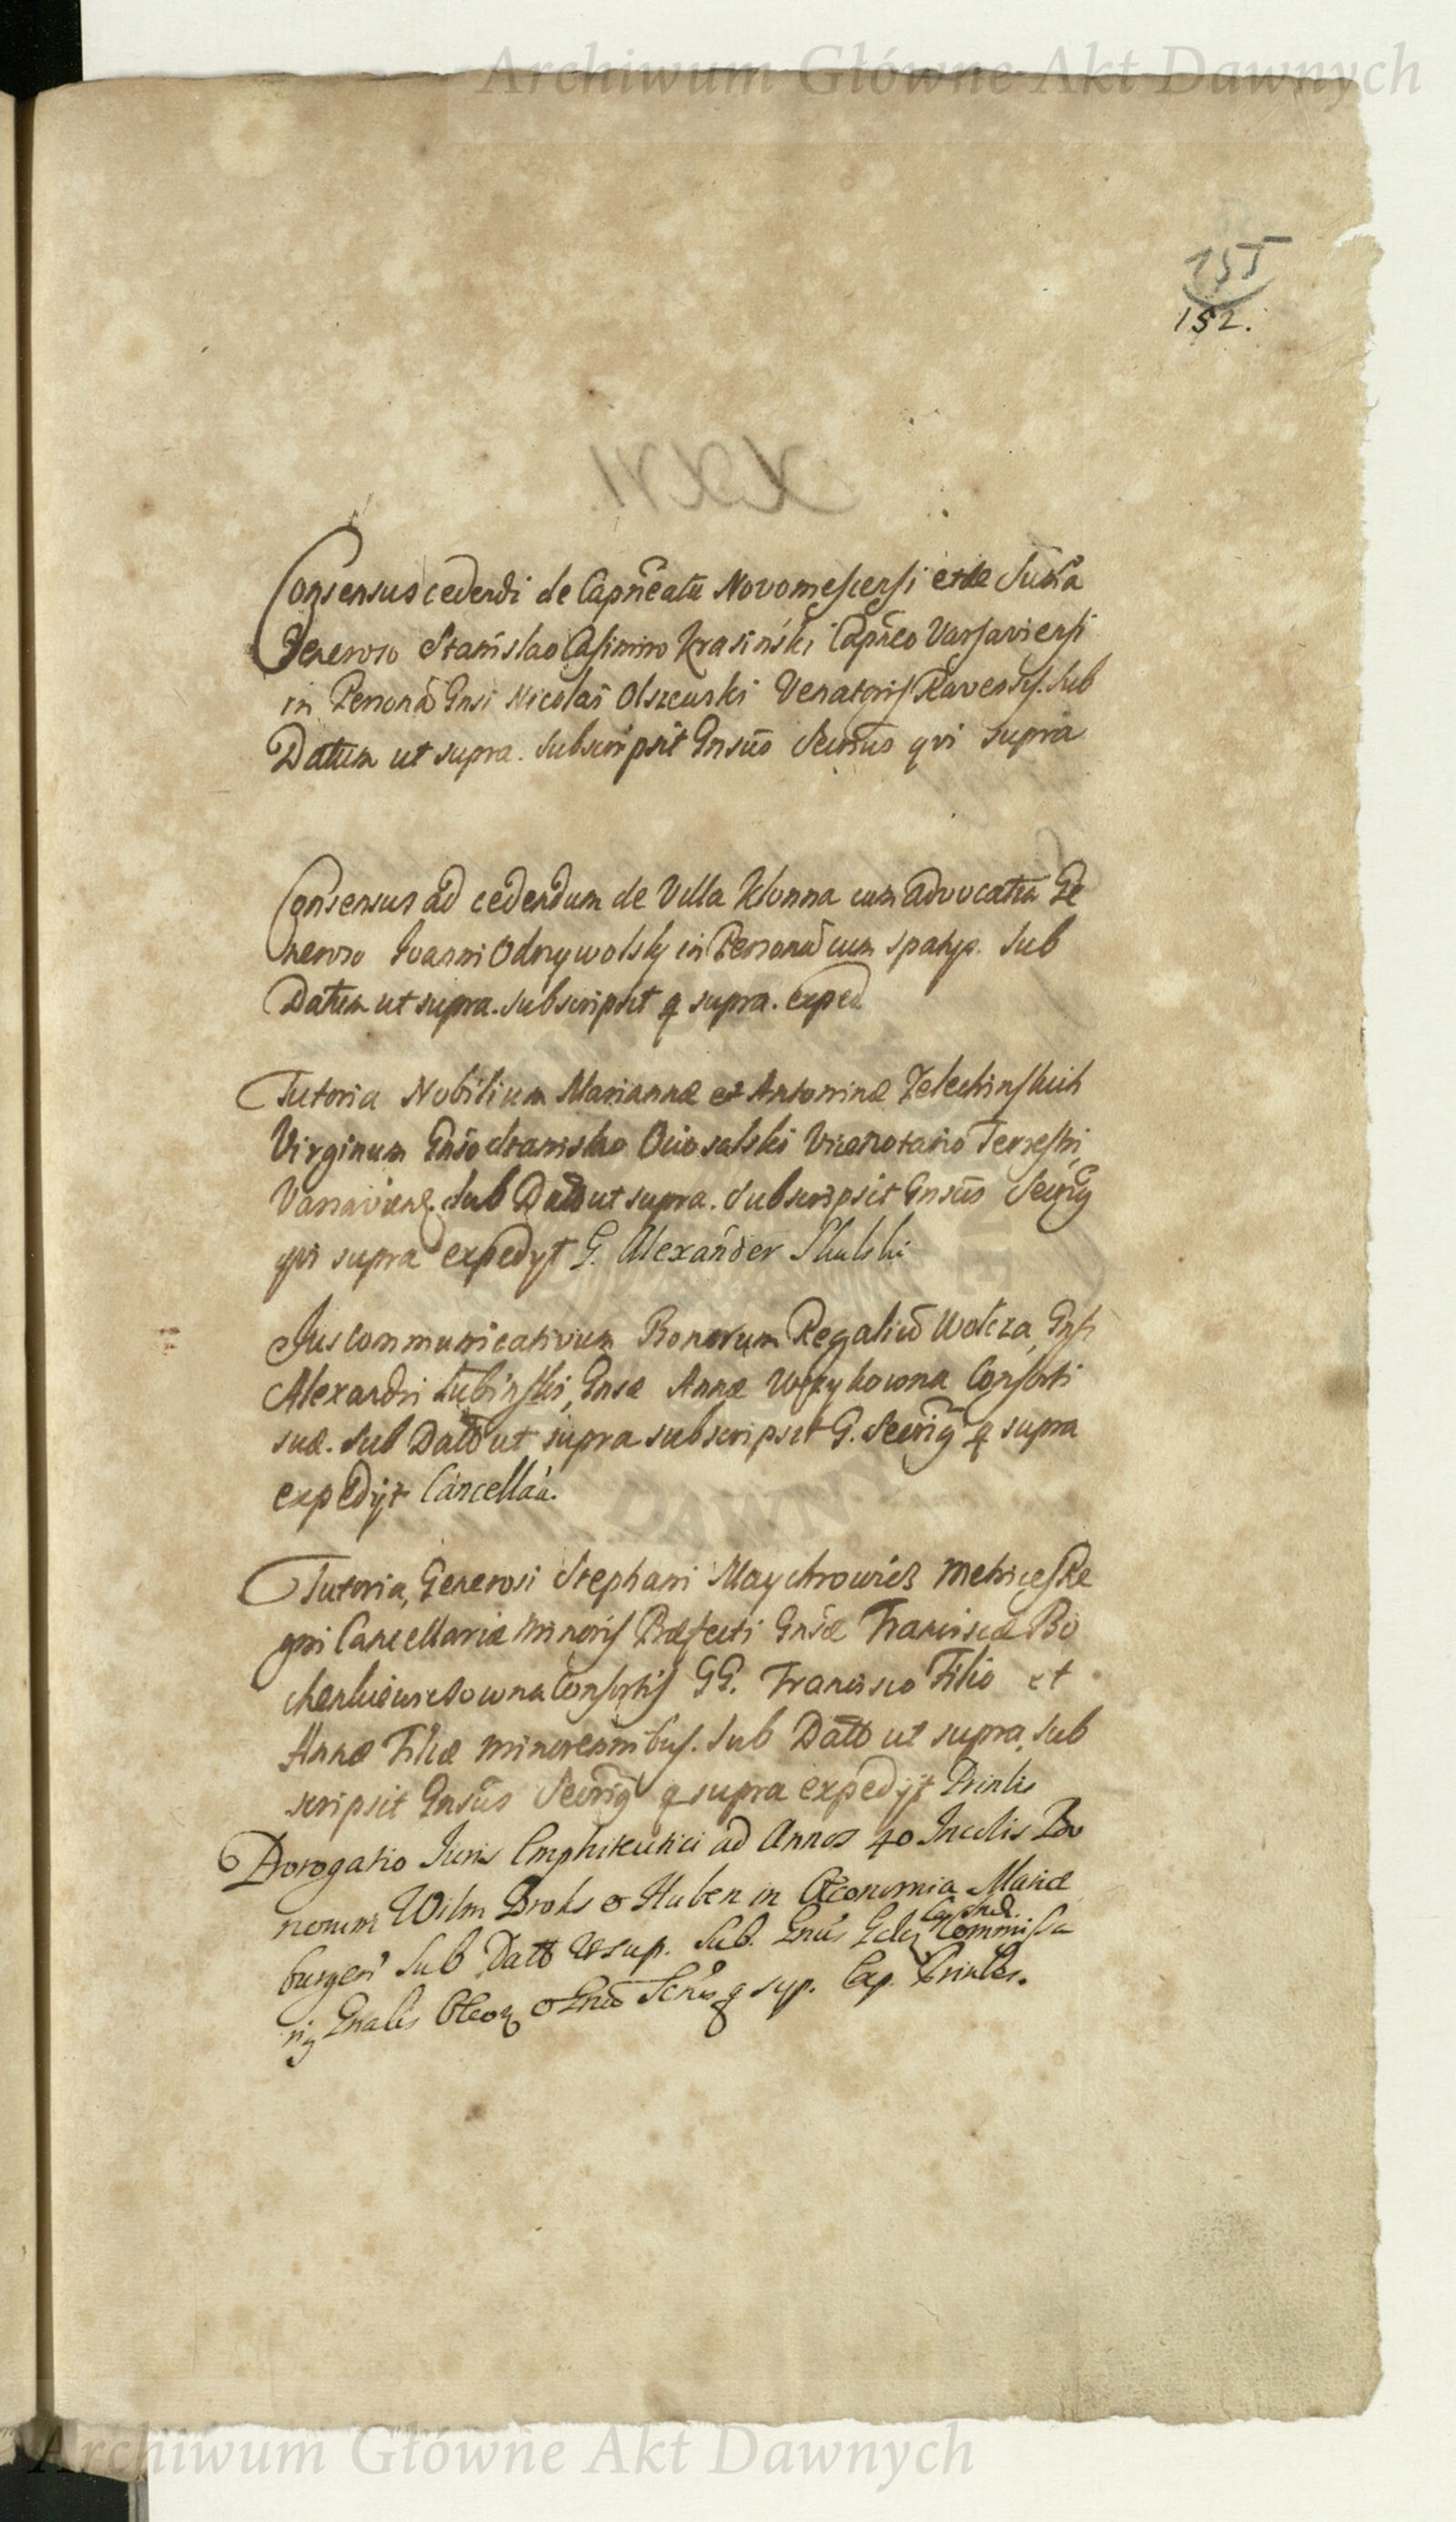 Archiwum Główne Akt Dawnych
155
152.
Consensus cedendi de Capñeatu Novomescensi et de Suma
Generoso Stanislao Casimiro Krasiński Capñeo Varsaviensi
in Personã Gnsi Nicolai Olszewski Venatoris Ravensis. Sub
Datum ut supra. Subscripsit Gnsũs qvi supra
Consensus ad cedendum de Villa Klonna cum advocatia Ge
neroso Ioanni Odrzywolsky in Personã cum spatyo. Sub
Datum ut supra. Subscripsit q supra. exped
Tutoria Nobilium Mariannæ et Antoninæ Zelechinskich
Virginum Gnso Stanislao Vicenotario Terrestri
Varsavien. Sub Datto ut supra. Subscripsit Gnsũs Secrig
qvi supra expedyt G. Alexánder Skulski
Jus communicativum Bonorum Regaliũ Wolcza Gnsi
Alexandri Łubinski, Gnsæ Annæ Wężykowna Consorti
suæ. Sub Datto ut supra subscripsit G. Secrig q supra
expedyt Cancellaa.
Tutoria, Generosi Stephani Maychrowicz Metrices Re
gni Cancellariæ Minoris Præfecti Gnsæ Franciscæ Bo
Consortis GG. Francisco Filio et
Annæ Filiæ minorennibus. Sub Datto ut supra, sub
scripsit Gnsũs Secrig q supra expedyt Printis
Prorogatio Juris Emphiteutici ad Annos 40 Incolis Bo
norum Wilm Broks & Huben in Œconomia Mariæ
burgen Sub Datto Ut sup. Sub. Commissa
Gnalis q sup. Exp. Printis.
Archiwum Główne Akt Dawnych